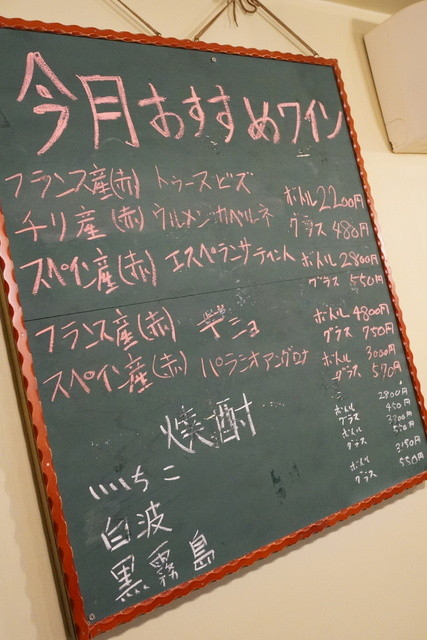 今月おすすめワイン
フランス産(赤) トゥースビズ ボトル2200円
チリ産 (赤) ウルメン・カベルネ グラス 480円
スペイン産(赤) エスペランサティント ボトル 2800円
グラス 550円
フランス産(赤) デショ ボトル4800円
グラス 750円
スペイン産(赤) パラシオアングロナ ボトル 3000円
グラス 570円
焼酎
ボトル 2800円
グラス 450円
いいちこ
ボトル
グラス 550円
白波
ボトル 3150円
グラス 550円
黒霧島